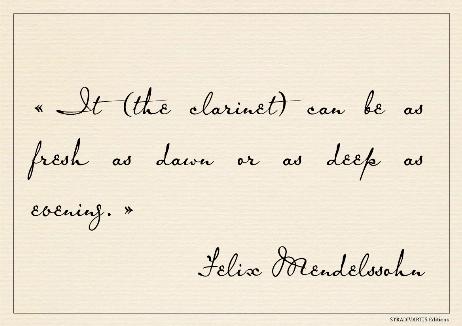 « It (the clarinet) can be as
fresh as dawn or as deep as
evening. »
Felix Mendelssohn
STRADIVARIUS Editions